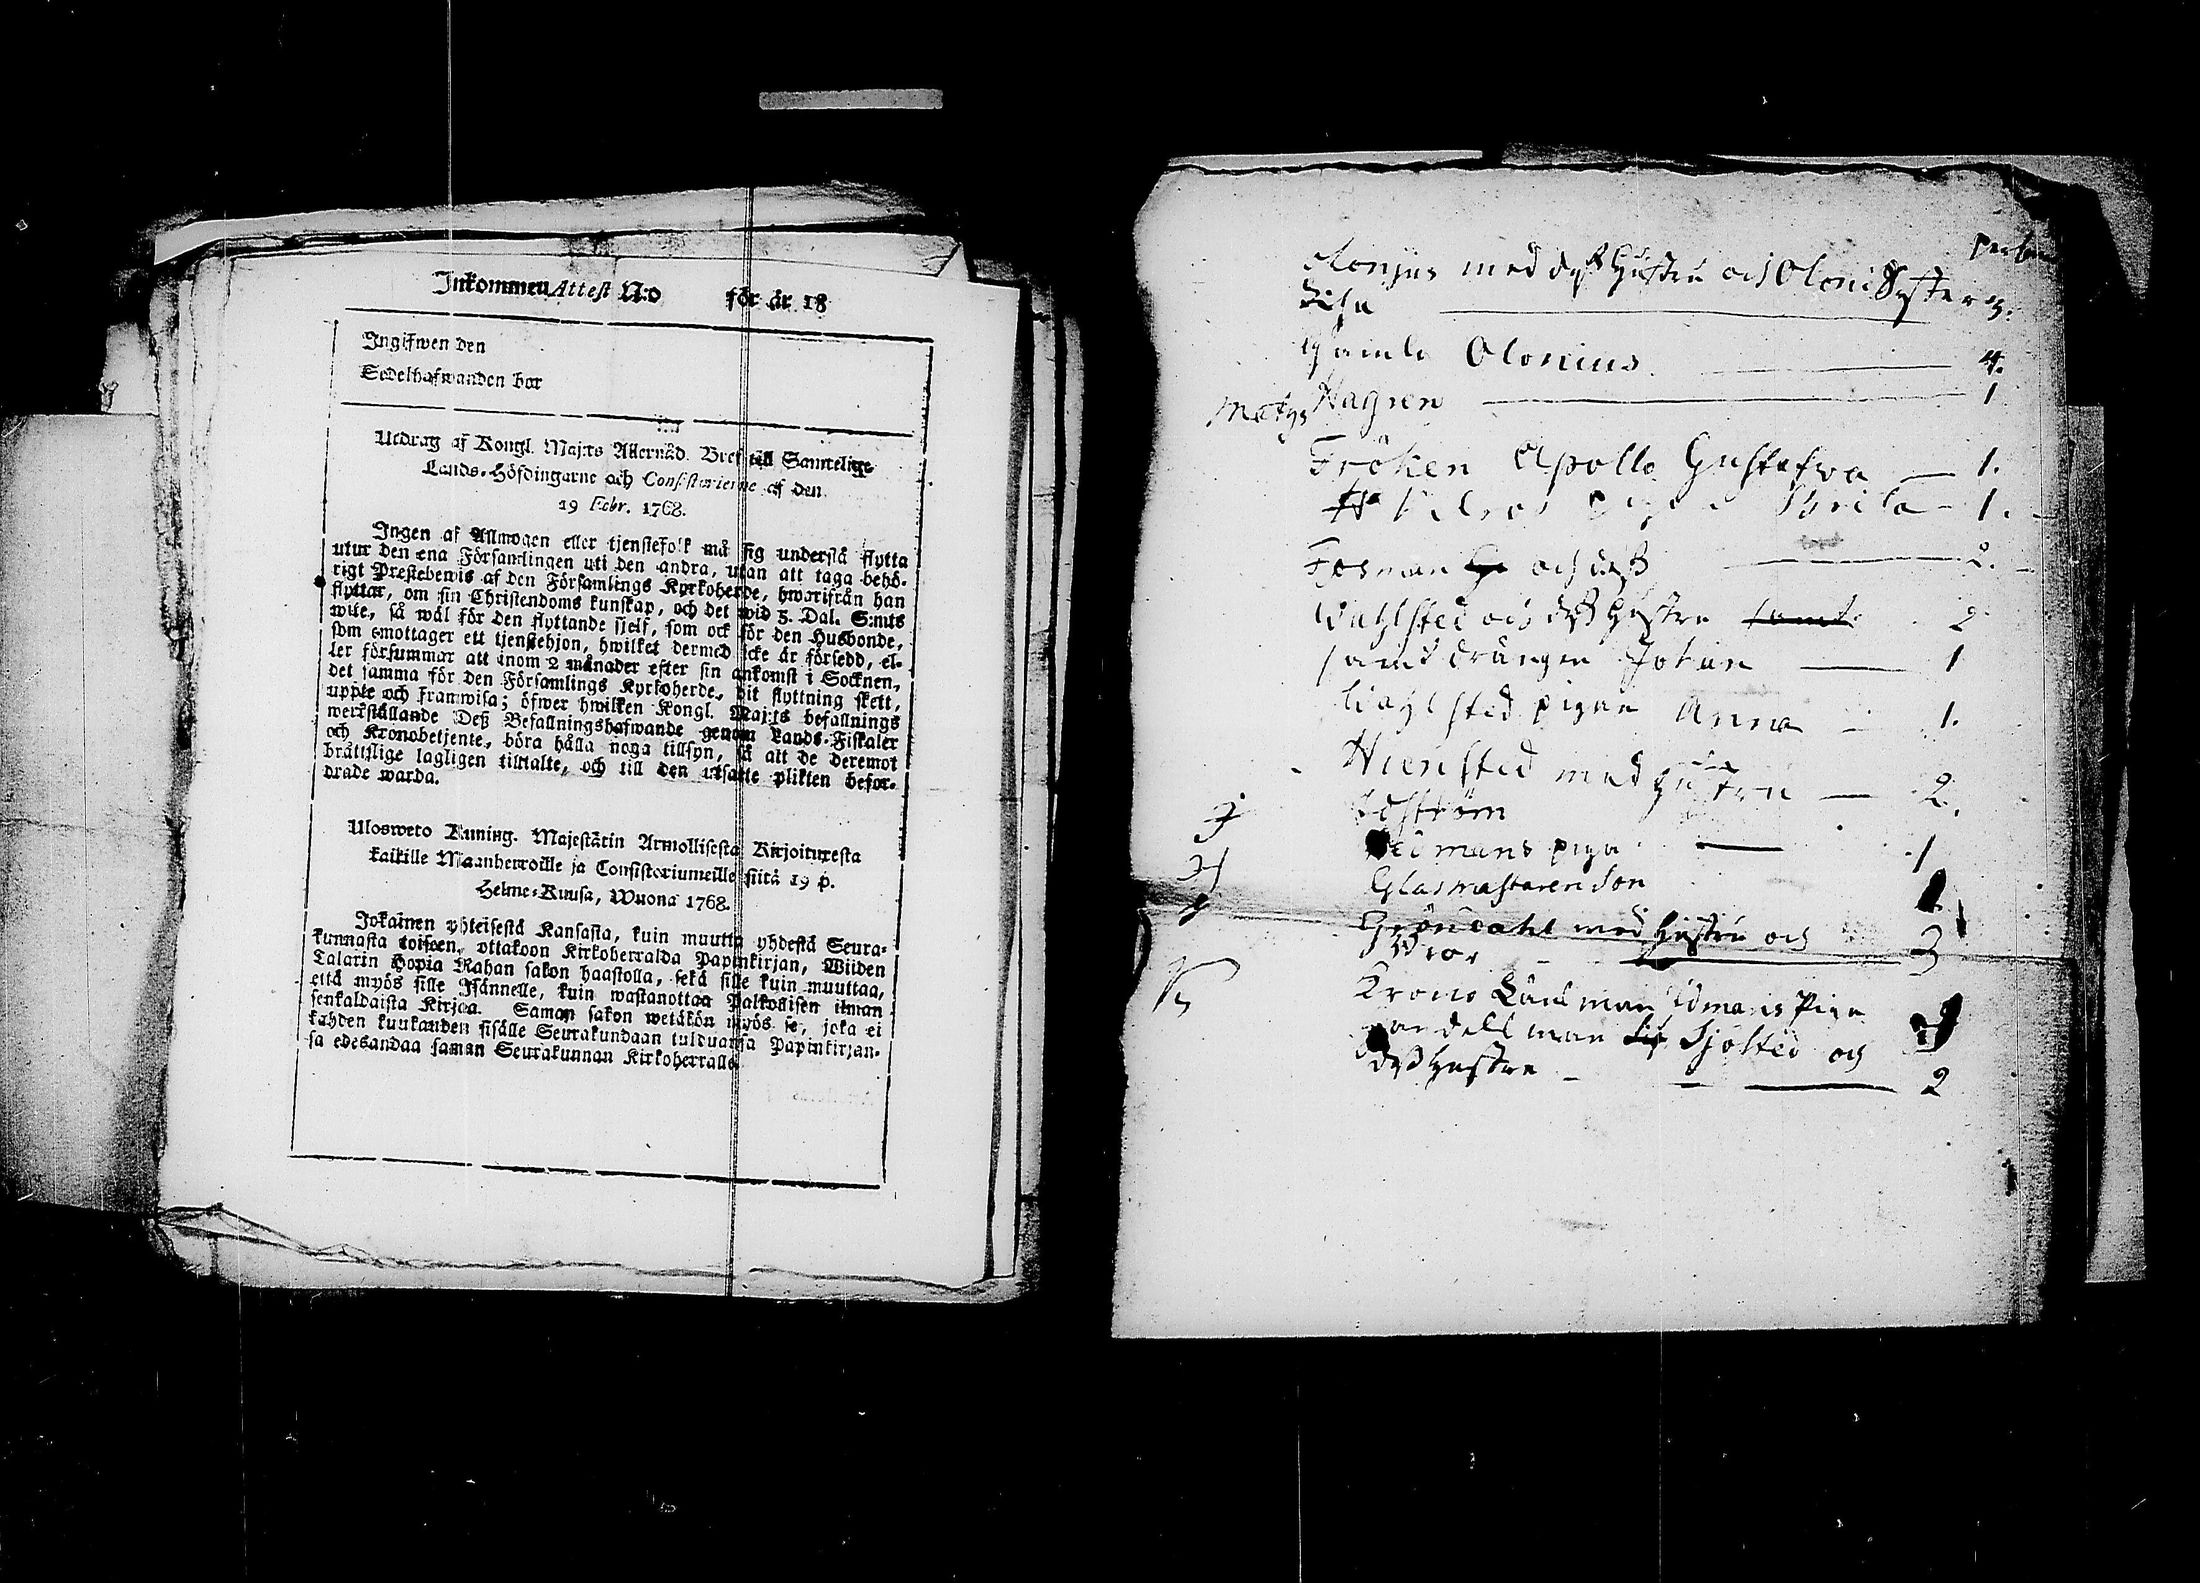 Inkommen Attest N:o för år 18
Ingifwen den
Sedelhafwanden bor
Utdrag af Kongl. Maj:ts Allernåd. Bref till Samtelige
Lands-Höfdingarne och Consistorierne af den
19 Febr. 1768.
Ingen af Allmogen eller tjenstefolk må sig understå flytta
utur den ena Församlingen uti den andra, utan att taga behö-
rigt Prestebewis af den Församlings Kyrkoherde, hwarifrån han
flyttar, om sin Christendoms kunskap, och det wid 5. Dal. S:mts
wite, så wäl för den flyttande sjelf, som ock för den Husbonde,
som emottager ett tjenstehjon, hwilket dermed icke är försedd, el-
ler försummar att inom 2 månader efter sin ankomst i Socknen,
det samma för den Församlings Kyrkoherde, dit flyttning skett,
uppte och framwisa; öfwer hwilken Kongl. Maj:ts befallnings
werkställande Deß Befallningshafwande genom Lands-Fiskaler
och Kronobetjente, böra hålla noga tillsyn, så att de deremot
bråttslige lagligen tilltalte, och till den utsatte plikten befor-
drade warda.
Ulosweto Kuning. Majestätin Armollisesta Kirjoituxesta
kaikille Maanherroille ja Consistoriumeille siitä 19 p.
Helme-Kuusa, Wuona 1768.
Jokainen yhteisestä Kansasta, kuin muutta yhdestä Seura-
kunnasta toiseen, ottakoon Kirkoherralda Papinkirjan, Wiiden
Talarin Hopia Rahan sakon haastolla, sekä sille kuin muuttaa,
että myös sille Isännelle, kuin wastanottaa Palkollisen ilman
senkaldaista Kirjaa. Saman sakon wetäkön myös se, joka ei
kahden kuukauden sisälle Seurakundaan tulduansa Papinkirjan-
sa edesandaa saman Seurakunnan Kirkoherralle.
Olonjus med dess Hustru och Oloni Syster
3.
Gamla Olonius 4.
Hagren 1
Fröken Apollo Gustafwa 1.
piga Brita 1.
Fosman och dess 2.
Wahlsted och dess Hustru samt 2
samt drängen Johan 1
Wahlsted pigan Anna 1.
med Hustru 2.
mans piga 1
Glasmästaren Son 1
Gröndahl med Hustru och
3
Krono Länsman Idmans Piga
man Sjösted och
dess Hustru 2